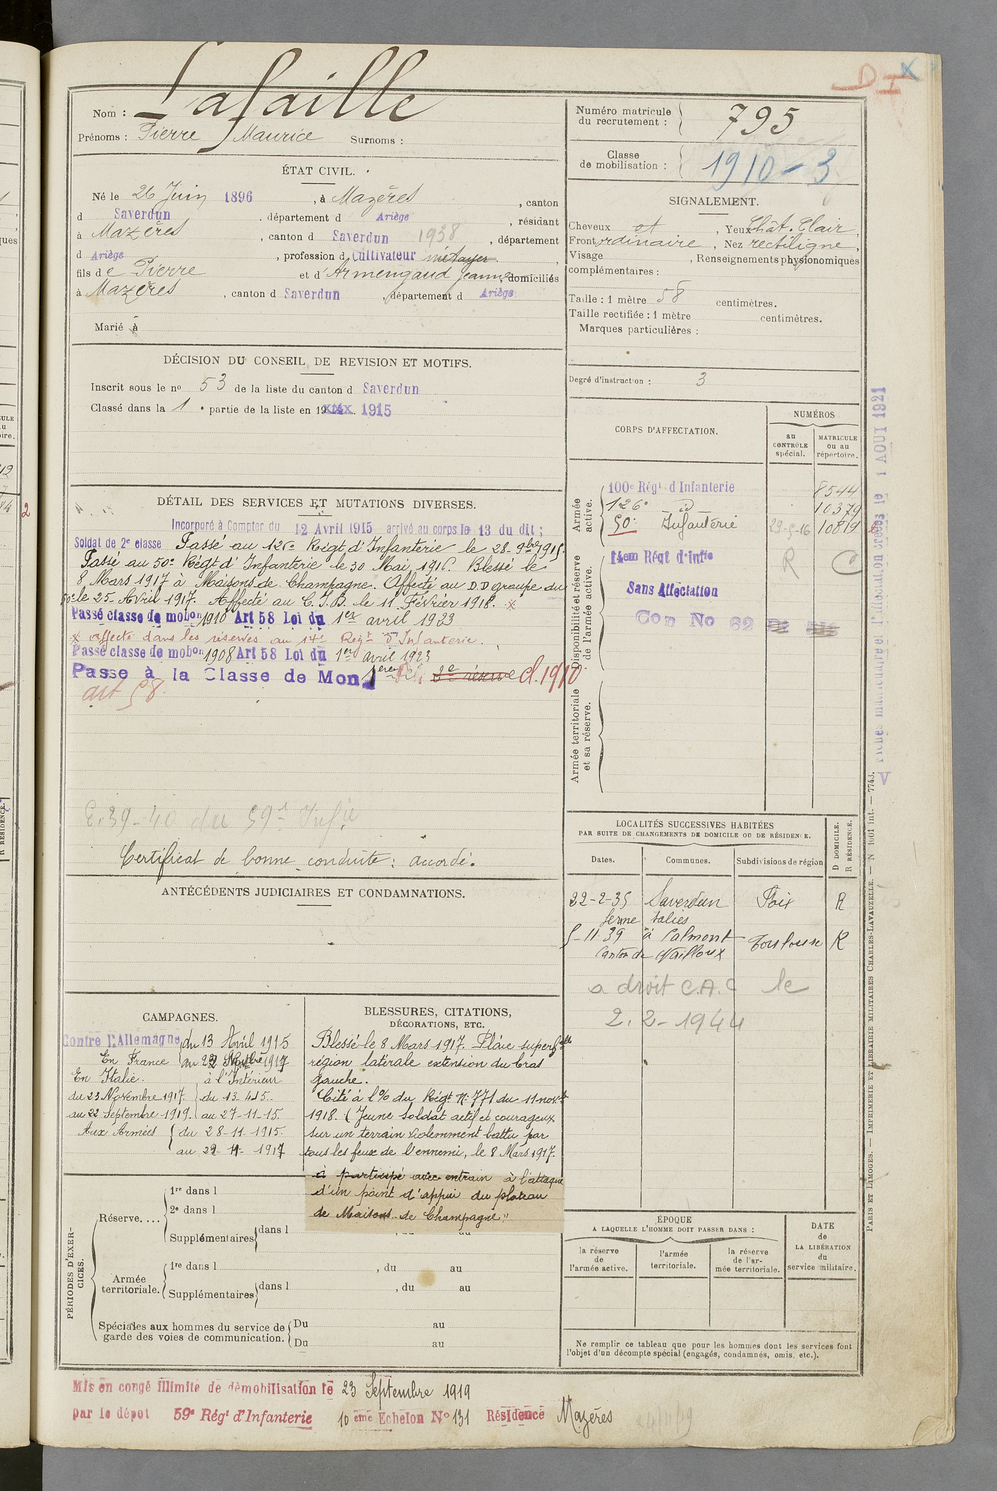 Nom : Lafaille
Prénoms : Pierre Maurice Surnoms :
Numéro matricule du recrutement : 795
Classe de mobilisation : 1910 - 3
ÉTAT CIVIL.
Né le 26 Juin 1896, à Mazères, canton
d Saverdun, département d Ariège, résidant
à Mazères, canton d Saverdun 1938, département
d Ariège, profession d Cultivateur métayer
fils de Pierre et d'Armengaud Jeanne domiciliés
à Mazères, canton d Saverdun, département d Ariège
Marié à
SIGNALEMENT.
Cheveux ct, Yeux Chât. Clair,
Front ordinaire, Nez rectiligne,
Visage , Renseignements physionomiques
complémentaires :
Taille : 1 mètre 58 centimètres.
Taille rectifiée : 1 mètre centimètres.
Marques particulières :
Degré d'instruction : 3
DÉCISION DU CONSEIL DE REVISION ET MOTIFS.
Inscrit sous le nº 53 de la liste du canton d Saverdun
Classé dans la 1e partie de la liste en 19 1915
DÉTAIL DES SERVICES ET MUTATIONS DIVERSES.
Incorporé à Compter du 12 Avril 1915 arrivé au corps le 13 du dit ;
Soldat de 2e classe Passé au 126e Régt d'Infanterie le 28 9bre 1915.
Passé au 50e Régt d'Infanterie le 30 Mai 1916. Blessé le
8 Mars 1917 à Maisons de Champagne. Affecté au D.D groupe du
50e le 25 Avril 1917. Affecté au C.I.B. le 11 Février 1918. x
Passé classe de mobon 1910 Art 58 Loi du 1er avril 1923
x affecté dans les réserves au 14e Régt d'Infanterie.
Passé classe de mobon 1908 Art 58 Loi du 1er avril 1923
Passe à la Classe de Mon 1ère Rés 2e réserve cl. 1910
art 58
E. 39-40 du 59e Infie
Certificat de bonne conduite : accordé.
CORPS D'AFFECTATION.
NUMÉROS
au CONTRÔLE spécial.
MATRICULE ou au répertoire.
Armée active.
100e Régt d'Infanterie 8544
126e d 10379
50e Infanterie 29-5-16 10819
Disponibilité et réserve de l'armée active.
14em Régt d'Infie R C
Sans Affectation
Con No 82
Armée territoriale et sa réserve.
ANTÉCÉDENTS JUDICIAIRES ET CONDAMNATIONS.
LOCALITÉS SUCCESSIVES HABITÉES
PAR SUITE DE CHANGEMENTS DE DOMICILE OU DE RÉSIDENCE.
Dates. Communes. Subdivisions de région
D DOMICILE.
R RÉSIDENCE.
22-2-35 Saverdun Foix R
ferme
5-11 39 à Calmont Toulouse R
Canton de Nailloux
a droit C.A.C le
2.2-1944
CAMPAGNES.
Contre l'Allemagne du 13 Avril 1915
En France au 22 Novbre 1917
En Italie. à l'Intérieur
du 23 Novembre 1917 du 13.4.15.
au 22 Septembre 1919. au 27-11-15
Aux Armées du 28-11-1915.
au 22 11 1917
BLESSURES, CITATIONS,
DÉCORATIONS, ETC.
Blessé le 8 Mars 1917. Plaie superflle
région latérale extension du bras
gauche.
Cité à l'O/ du Régt Nº 771 du 11 novbre
1918. (Jeune soldat actif et courageux
sur un terrain violemment battu par
tous les feux de l'ennemi, le 8 Mars 1917.
à participé avec entrain à l'attaque
d'un point d'appui du plateau
de Maisons de Champagne"
PÉRIODES D'EXERCICES.
Réserve....
1re dans l
2e dans l
Supplémentaires dans l
Armée territoriale.
1re dans l , du au
Supplémentaires dans l , du au
Spéciales aux hommes du service de garde des voies de communication.
Du au
Du au
ÉPOQUE
A LAQUELLE L'HOMME DOIT PASSER DANS :
la réserve de l'armée active.
l'armée territoriale.
la réserve de l'armée territoriale.
DATE de LA LIBÉRATION du service militaire.
Ne remplir ce tableau que pour les hommes dont les services font
l'objet d'un décompte spécial (engagés, condamnés, omis, etc.).
Mis en congé illimité de démobilisation le 23 Septembre 1919
par le dépôt 59e Régt d'Infanterie 10 ème Echelon Nº 131 Résidence Mazères
PARIS ET LIMOGES. — IMPRIMERIE ET LIBRAIRIE MILITAIRES CHARLES-LAVAUZELLE.